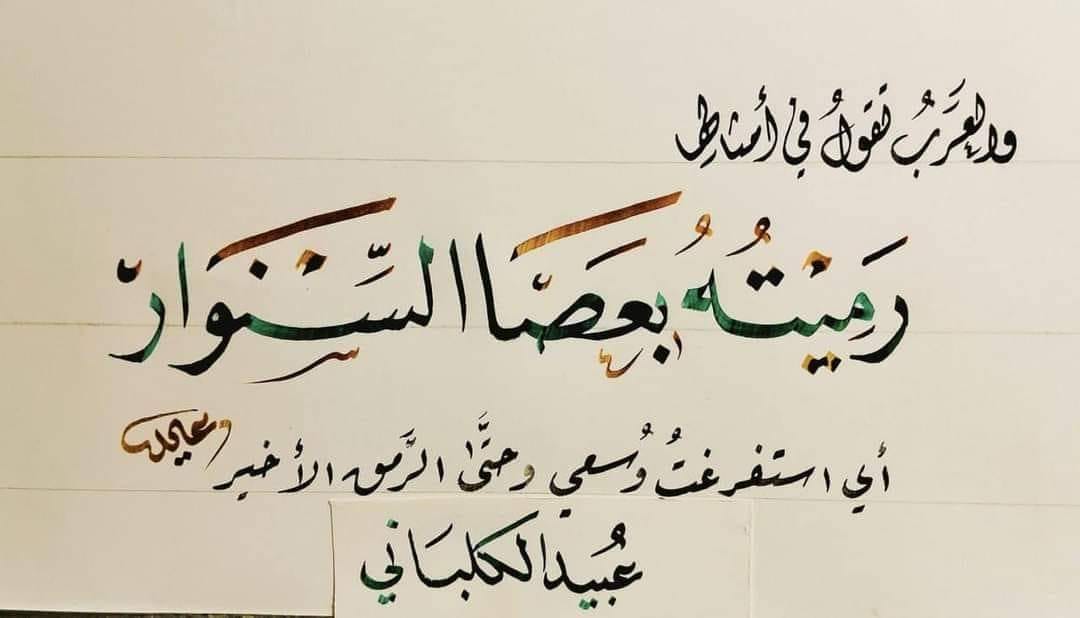 والعَرَبُ تَقولُ في أمثالِها
رَمَيْتُهُ بعَصَا السِّنْوَارْ
أي استفرغتُ وُسعي وحتَّى الرَّمق الأخير
عُبيد الكلبَاني